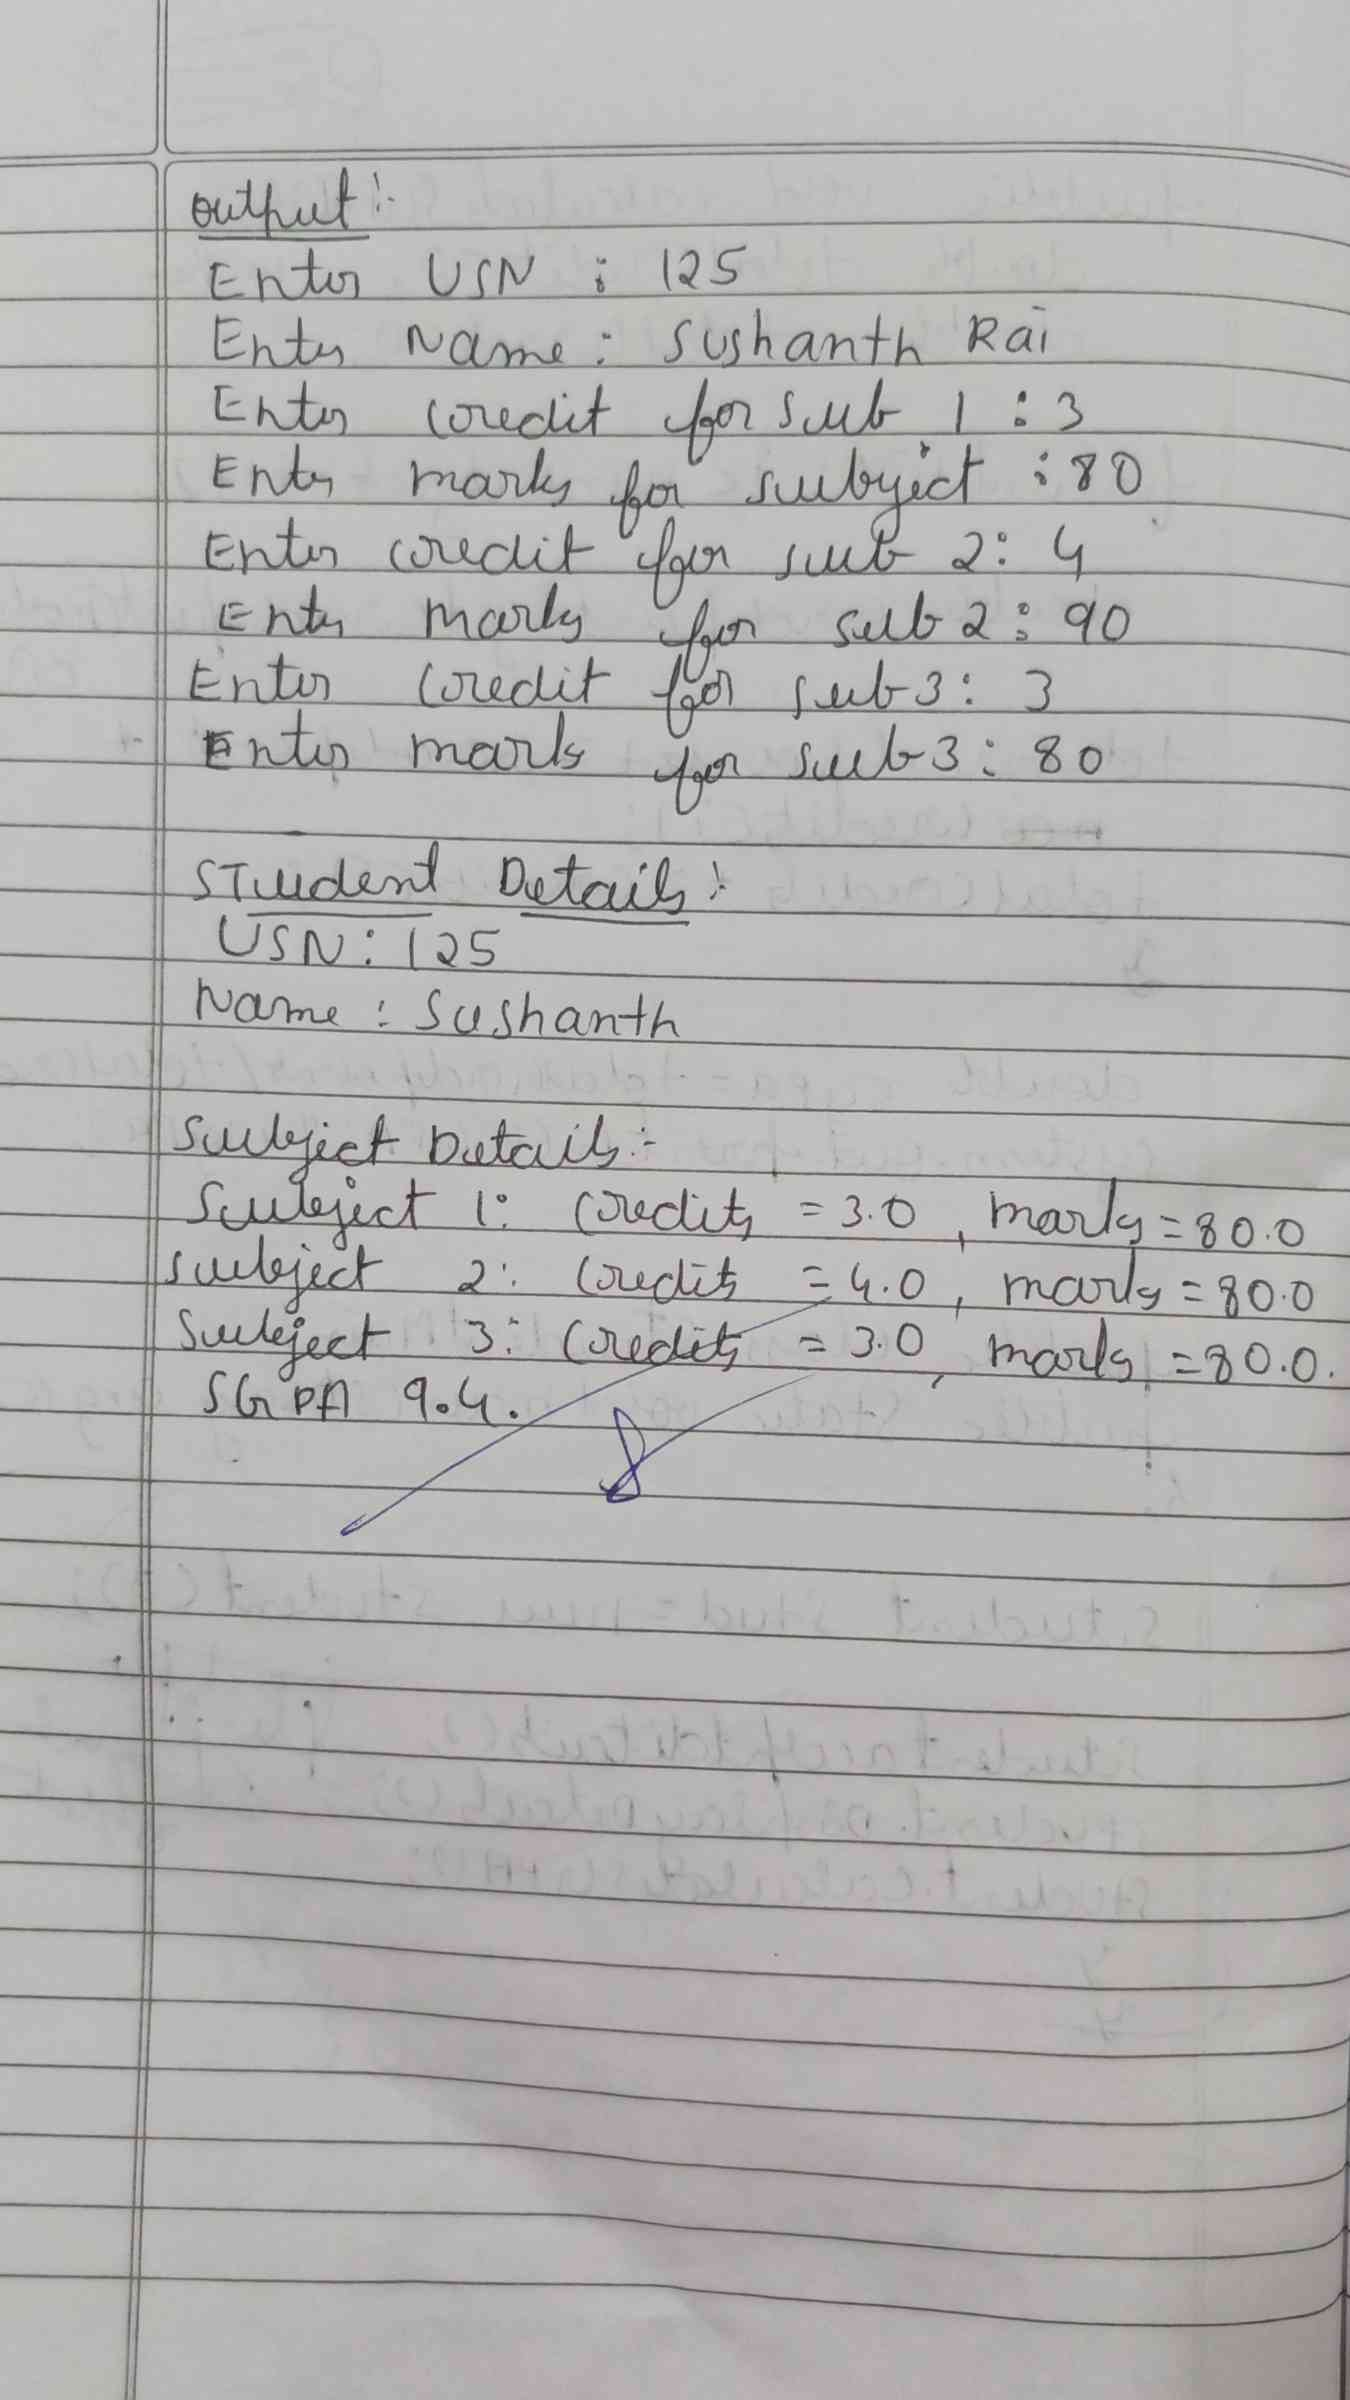 output:-
Enter USN : 125
Enter Name : Sushanth Rai
Enter credit for sub 1 : 3
Enter marks for subject : 80
Enter credit for sub 2 : 4
Enter marks for sub 2 : 90
Enter credit for sub 3 : 3
Enter marks for sub 3 : 80
Student Details :-
USN : 125
Name : Sushanth
Subject Details :-
Subject 1: Credits = 3.0 , marks = 80.0
subject 2: Credits = 4.0 , marks = 80.0
Subject 3: Credits = 3.0 , marks = 80.0.
SGPA 9.4.